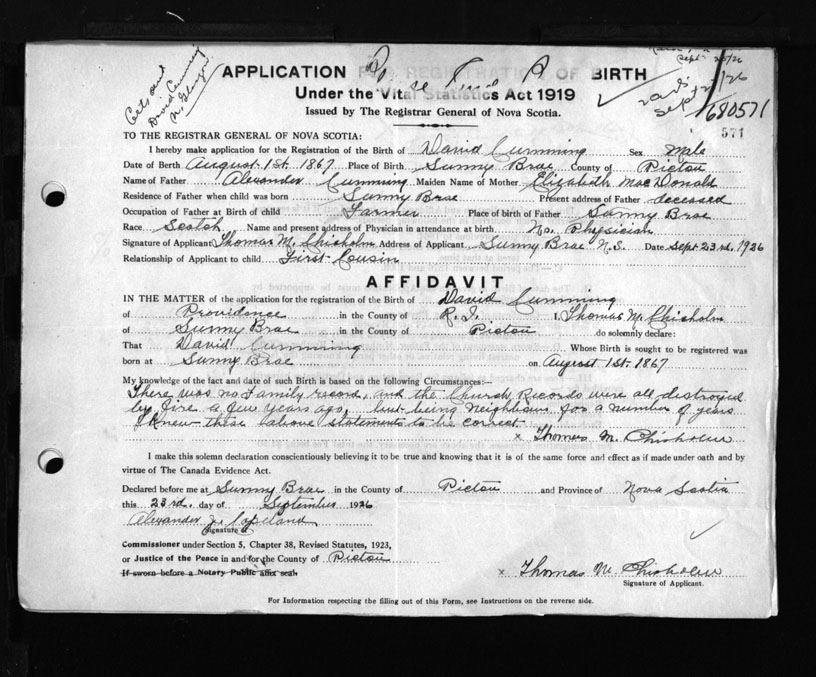 Sept 23/26
APPLICATION FOR REGISTRATION OF BIRTH
Under the Vital Statistics Act 1919
Issued by The Registrar General of Nova Scotia.
David Cumming
680571
571
TO THE REGISTRAR GENERAL OF NOVA SCOTIA:
I hereby make application for the Registration of the Birth of David Cumming Sex Male
Date of Birth August 1st. 1867 Place of Birth Sunny Brae County of Pictou
Name of Father Alexander Cumming Maiden Name of Mother Elizabeth MacDonald
Residence of Father when child was born Sunny Brae Present address of Father deceased
Occupation of Father at Birth of child Farmer Place of birth of Father Sunny Brae
Race Scotch Name and present address of Physician in attendance at birth. No. Physician
Signature of Applicant Thomas M. Chisholm Address of Applicant Sunny Brae N.S. Date Sept 23rd. 1926
Relationship of Applicant to child First Cousin
AFFIDAVIT
IN THE MATTER of the application for the registration of the Birth of David Cumming
of Providence in the County of R. I. I, Thomas M. Chisholm
of Sunny Brae in the County of Pictou do solemnly declare:
That David Cumming Whose Birth is sought to be registered was
born at Sunny Brae on August 1st. 1867
My knowledge of the fact and date of such Birth is based on the following Circumstances:—
There was no Family record, and the Church Records were all destroyed
by fire a few years ago, but being Neighbours for a number of years
I Knew these above statements to be correct
x Thomas M. Chisholm
I make this solemn declaration conscientiously believing it to be true and knowing that it is of the same force and effect as if made under oath and by
virtue of The Canada Evidence Act.
Declared before me at Sunny Brae in the County of Pictou and Province of Nova Scotia
this 23rd. day of September 1926
Alexander J. Copeland
Signature of
Commissioner under Section 5, Chapter 38, Revised Statutes, 1923,
or Justice of the Peace in and for the County of Pictou
If sworn before a Notary Public affix seal
x Thomas M. Chisholm
Signature of Applicant.
For Information respecting the filling out of this Form, see Instructions on the reverse side.